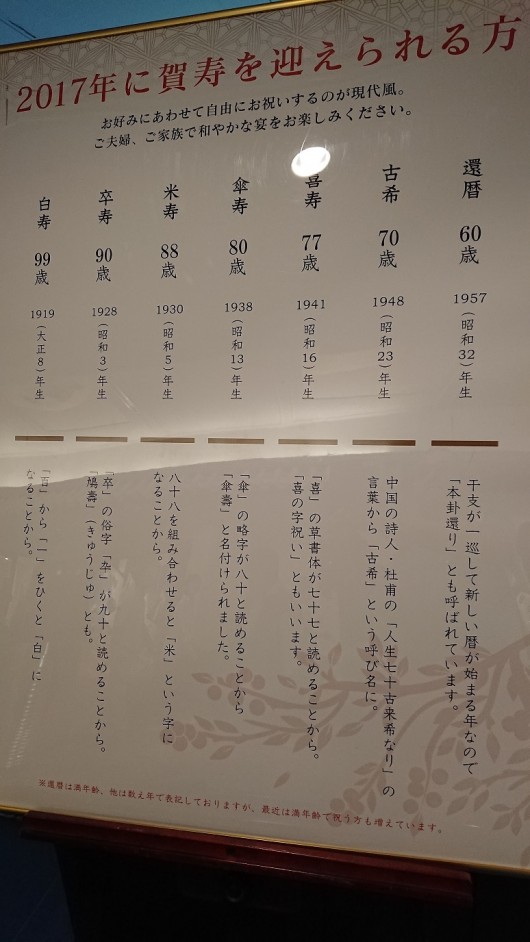 2017年に賀寿を迎えられる方
お好みにあわせて自由にお祝いするのが現代風。
ご夫婦、ご家族で和やかな宴をお楽しみください。
還暦
60歳
1957(昭和32)年生
干支が一巡して新しい暦が始まる年なので
「本卦還り」とも呼ばれています。
古希
70歳
1948(昭和23)年生
中国の詩人・杜甫の「人生七十古来希なり」の
言葉から「古希」という呼び名に。
喜寿
77歳
1941(昭和16)年生
「喜」の草書体が七十七と読めることから。
「喜の字祝い」ともいいます。
傘寿
80歳
1938(昭和13)年生
「傘」の略字が八十と読めることから
「傘壽」と名付けられました。
米寿
88歳
1930(昭和5)年生
八十八を組み合わせると「米」という字に
なることから。
卒寿
90歳
1928(昭和3)年生
「卒」の俗字「卆」が九十と読めることから。
「鳩壽」(きゅうじゅ)とも。
白寿
99歳
1919(大正8)年生
「百」から「一」をひくと「白」に
なることから。
※還暦は満年齢、他は数え年で表記しておりますが、最近は満年齢で祝う方も増えています。